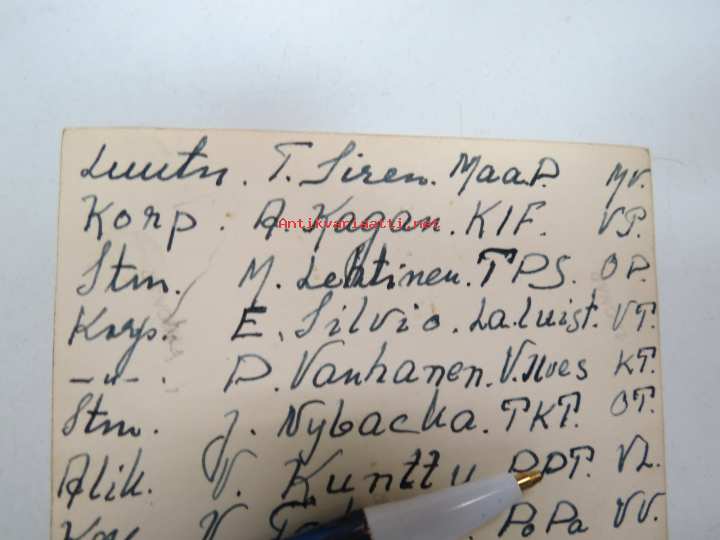 Luutn. T. Siren. Maa.P. MV.
Korp. A. Kagan. KIF. VP.
Antikvariaatti.net
Stm. M. Lehtinen. TPS. OP.
Korp. E. Silvio. La.luist. VT.
-"-. P. Vanhanen. V.Ilves KT.
Stm. J. Nybacka. TKT. OT.
Alik. V. Kunttu PPT. VL.
V. PoPa VV.